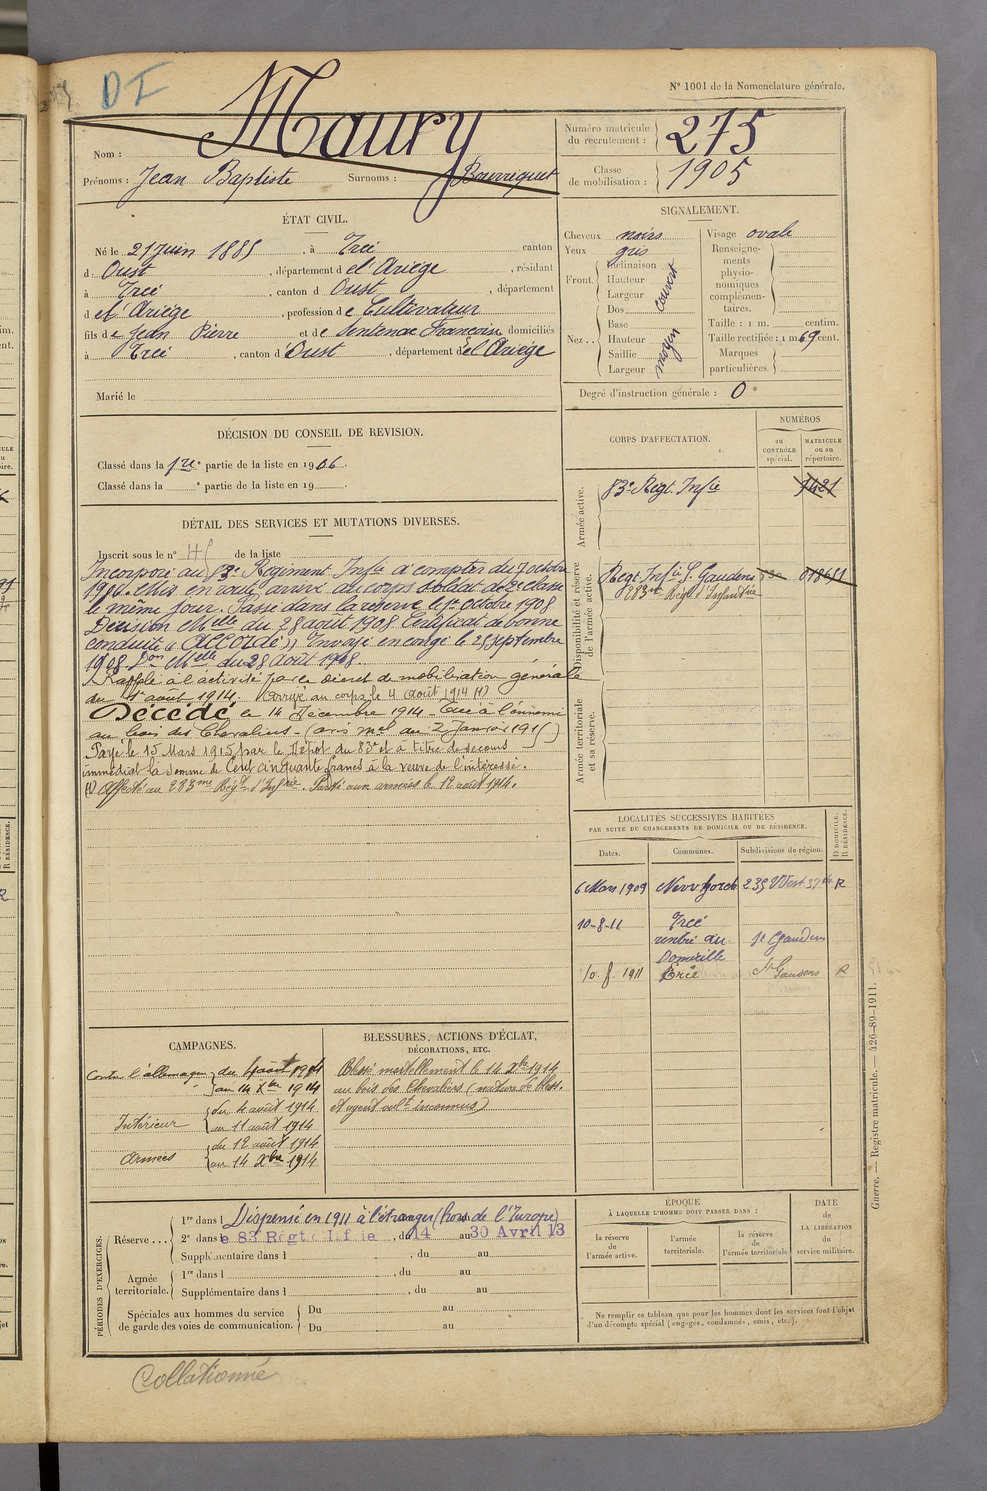 DI
N° 1001 de la Nomenclature générale.
Nom : Maury
Prénoms : Jean Baptiste Surnoms : Bourriquet
Numéro matricule du recrutement : 275
Classe de mobilisation : 1905
ÉTAT CIVIL.
Né le 21 juin 1885, à Ercé canton
d'Oust, département de l'Ariège, résidant
à Ercé, canton d'Oust, département
de l'Ariège, profession de Cultivateur
fils de Jean Pierre et de Sentenac Françoise domiciliés
à Ercé, canton d'Oust, département de l'Ariège
Marié le
SIGNALEMENT.
Cheveux noirs
Yeux gris
Front. Inclinaison
Hauteur
Largeur
couvert
Nez.. Dos
Base
Hauteur
Saillie
Largeur
moyen
Visage ovale
Renseigne-
ments
physio-
nomiques
complémen-
taires.
Taille : 1 m. centim.
Taille rectifiée : 1 m 69 cent.
Marques
particulières.
Degré d'instruction générale : 0
DÉCISION DU CONSEIL DE REVISION.
Classé dans la 1re partie de la liste en 1906.
Classé dans la ° partie de la liste en 19
CORPS D'AFFECTATION.
NUMÉROS
au CONTRÔLE spécial.
MATRICULE ou au répertoire.
Armée active.
83e Régt Infie 7421
Disponibilité et réserve de l'armée active.
Régt Infie St Gaudens 018651
283me Régt d'Infanterie
Armée territoriale et sa réserve.
DÉTAIL DES SERVICES ET MUTATIONS DIVERSES.
Inscrit sous le n° 45 de la liste
Incorporé au 83e Régiment Infie à compter du 7 octobre
1906. Mis en route, arrivé au corps soldat de 2e classe
le même jour. Passé dans la réserve le 1er octobre 1908
Décision Melle du 28 août 1908. Certificat de bonne
conduite « ACCORDÉ » Envoyé en congé le 25 septembre
1908 Don Melle du 28 août 1908.
Rappelé à l'activité par le décret de mobilisation générale
du 1er août 1914. Arrivé au corps le 4 août 1914 (1)
Décédé le 14 Décembre 1914 - Tué à l'ennemi
au bois des Chevaliers - (avis mel du 2 Janvier 1915)
Payé le 15 Mars 1915 par le Dépôt du 83e et à titre de secours
immédiat la somme de Cent cinquante francs à la veuve de l'intéressé.
(1) Affecté au 283me Régt d'Infrie. Parti aux armées le 12 août 1914.
LOCALITÉS SUCCESSIVES HABITÉES
PAR SUITE DE CHANGEMENTS DE DOMICILE OU DE RÉSIDENCE.
Dates. Communes. Subdivisions de région. D DOMICILE. R RÉSIDENCE.
6 Mars 1909 New York 235 West 37 R
10-8-11 Ercé
rentré au St Gaudens
Domicile
10. 8. 1911 Ercé St Gaudens R
CAMPAGNES.
Contre l'allemagne du 4 août 1914
au 14 Xbre 1914
Intérieur du 4 août 1914
au 11 août 1914
Armées du 12 août 1914
au 14 Xbre 1914
BLESSURES, ACTIONS D'ÉCLAT,
DÉCORATIONS, ETC.
Blessé mortellement le 14 Xbre 1914
au bois des Chevaliers (nature de bless.
et agent vult inconnus)
PÉRIODES D'EXERCICES.
Réserve... 1re dans l Dispensé en 1911 à l'étranger (hors de l'Europe)
2e dans le 83 Régt d'Infie, du 14 au 30 Avril 13
Supplémentaire dans l , du au
Armée territoriale. 1re dans l , du au
Supplémentaire dans l , du au
Spéciales aux hommes du service
de garde des voies de communication. Du au
Du au
ÉPOQUE
À LAQUELLE L'HOMME DOIT PASSER DANS :
la réserve de l'armée active.
l'armée territoriale.
la réserve de l'armée territoriale
DATE de LA LIBÉRATION du service militaire.
Ne remplir ce tableau que pour les hommes dont les services font l'objet
d'un décompte spécial (engagés, condamnés, omis, etc.).
Guerre. — Registre matricule. — 426-89-1911.
Collationné